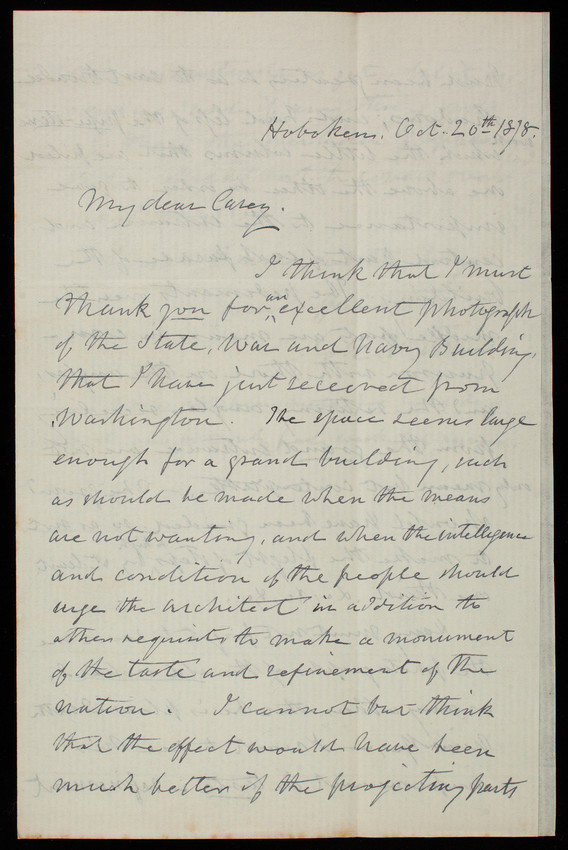 Hoboken, Oct. 20th 1878.
My dear Casey.
I think that I must
thank you for an excellent photograph
of the State, War and Navy Building,
that I have just received from
Washington. The space seems large
enough for a grand building, such
as should be made when the means
are not wanting, and when the intelligence
and condition of the people should
urge the architect in addition to
other requisits to make a monument
of the taste and refinement of the
nation. I cannot but think
that the effect would have been
much better if the projecting parts